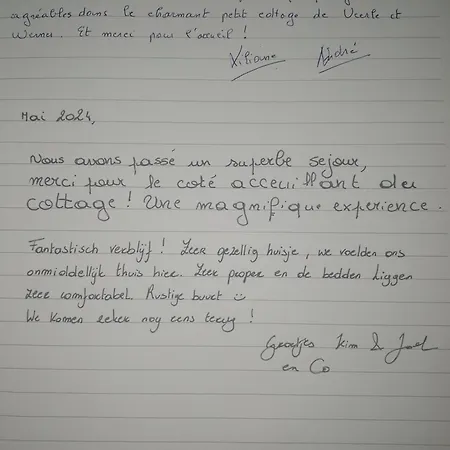 agréables dans le charmant petit cottage de Veerle et
Werner. Et merci pour l'accueil !
Liliane André
Mai 2024,
Nous avons passé un superbe sejour,
merci pour le coté acceuillant du
cottage ! Une magnifique experience.
Fantastisch verblijf ! Zeer gezellig huisje, we voelden ons
onmiddellijk thuis hier. Zeer proper en de bedden liggen
zeer comfortabel. Rustige buurt ☺
We komen zeker nog eens terug !
Groetjes Kim &
en Co